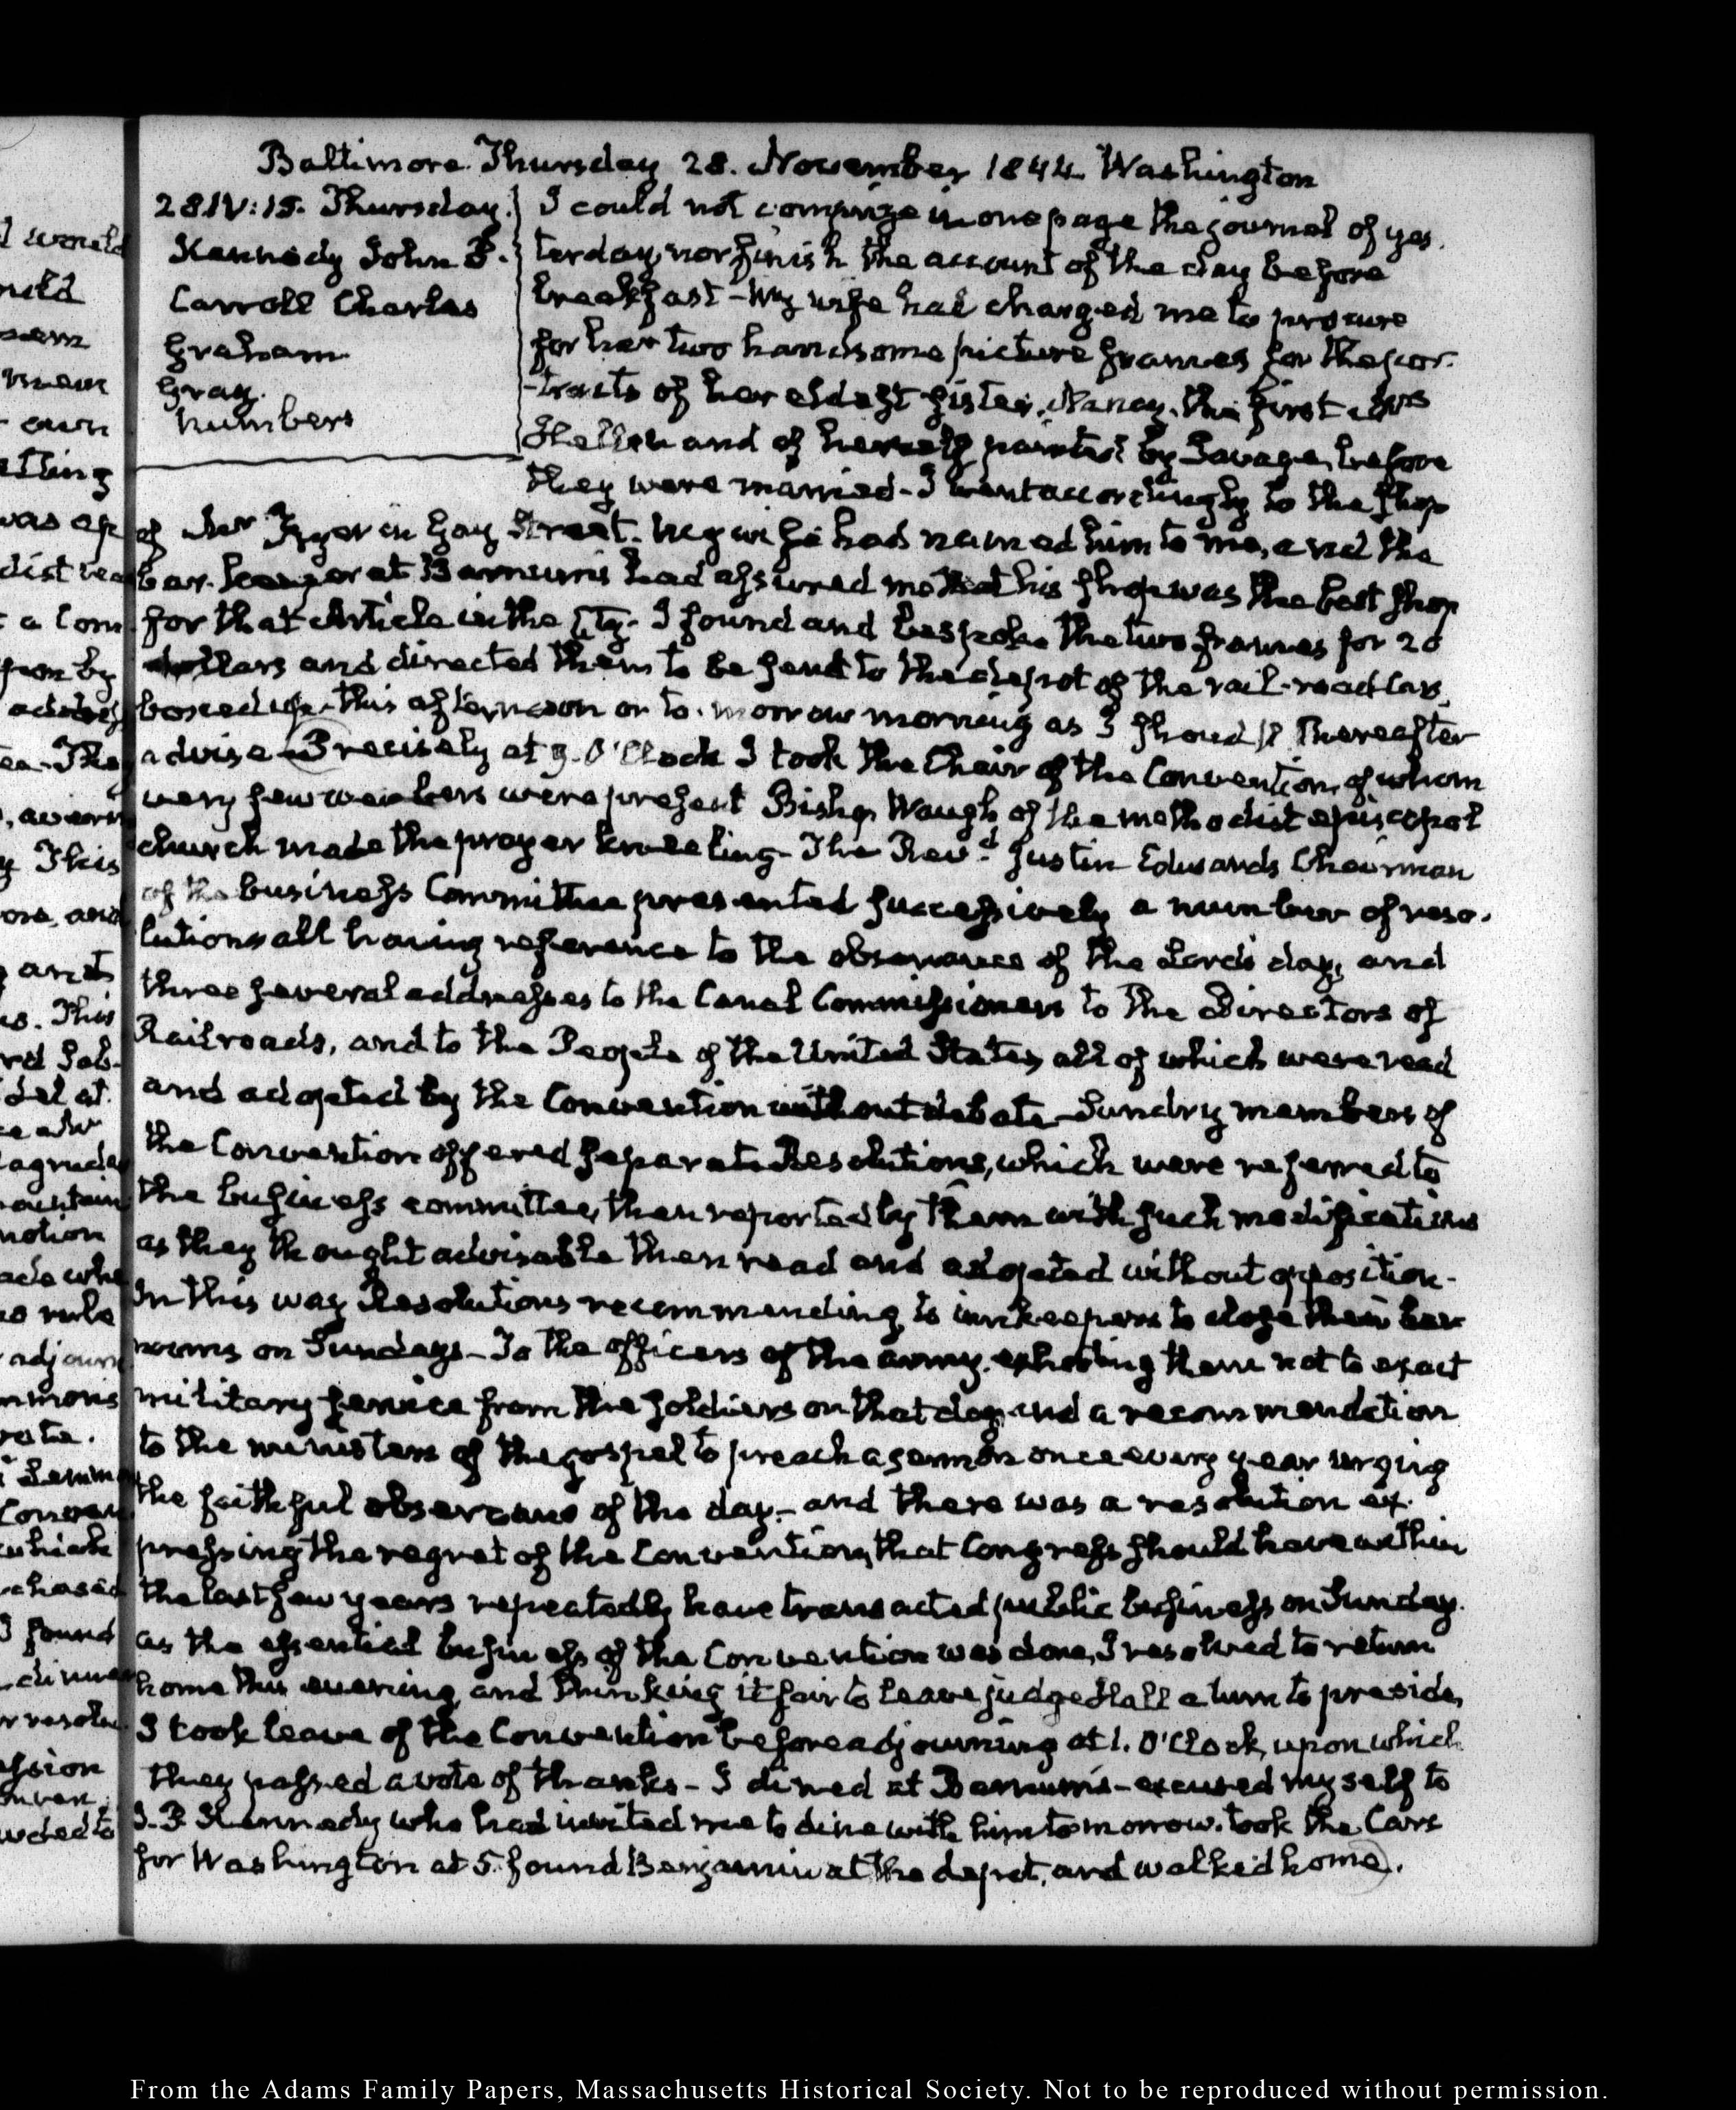 Baltimore Thursday 28. November 1844. Washington
28 IV:15. Thursday.
Kennedy John P.
Carroll Charles
Graham
Gray.
Numbers
I could not comprize in one page the journal of yes.
terday, nor finish the account of the day before
breakfast – My wife had charged me to procure
for her two handsome picture frames for the por-
-traits of her eldest sister, Nancy, the first Mrs
Hellen and of herself painted by Savage, before
they were married – I went accordingly to the shop
of Mr in Gay Street. my wife had named him to me, and the
bar-keeper at Barnum's had assured me that his shop was the best shop
for that Article in the City. I found and bespoke the two frames for 20
dollars and directed them to be send to the depot of the rail-road Cars,
boxed up this afternoon or to-morrow morning as I should thereafter
advise – Precisely at 9. O'Clock I took the Chair of the Convention, of whom
very few members were present Bishop Waugh of the methodist episcopal
church made the prayer kneeling – The Revd Justin Edwards Chairman
of the business Committee presented successively a number of reso-
lutions all having reference to the observance of the Lord's day, and
three several addresses to the Canal Commissioners to the Directors of
Railroads, and to the People of the United States, all of which were read
and adopted by the Convention without debate – Sundry members of
the Convention offered separate Resolutions, which were referred to
the business committee, then reported by them with such modifications
as they thought advisable then read and adopted without opposition –
In this way Resolutions recommending to innkeepers to close their bar
rooms on Sundays – To the officers of the army exhorting them not to exact
military service from the soldiers on that day and a recommendation
to the ministers of the gospel to preach a sermon once every year urging
the faithful observance of the day – and there was a resolution ex-
pressing the regret of the Convention, that Congress should have within
the last few years repeatedly have transacted public business on Sunday.
as the essential business of the Convention was done, I resolved to return
home this evening, and thinking it fair to leave judge Hall a turn to preside,
I took leave of the Convention before adjourning at 1. O'Clock, upon which
they passed a vote of thanks – I dined at Barnum's – excused myself to
J. P. Kennedy who had invited me to dine with him tomorrow. took the Cars
for Washington at 5. found Benjamin at the depot, and walked home.
From the Adams Family Papers, Massachusetts Historical Society. Not to be reproduced without permission.